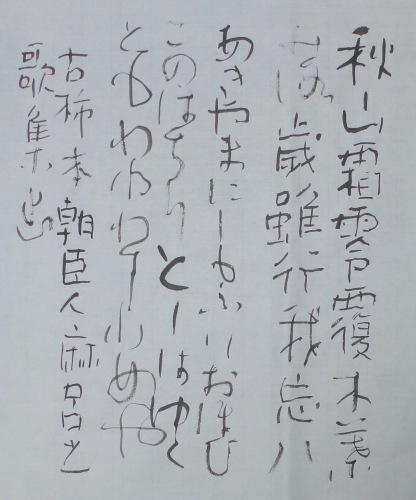 秋山霜零覆木葉
落歳雖行我忘八
あきやまにしもふりおほひ
このはちりとしはゆく
ともわれわすれめや
右柿本朝臣人麻呂之
歌集出